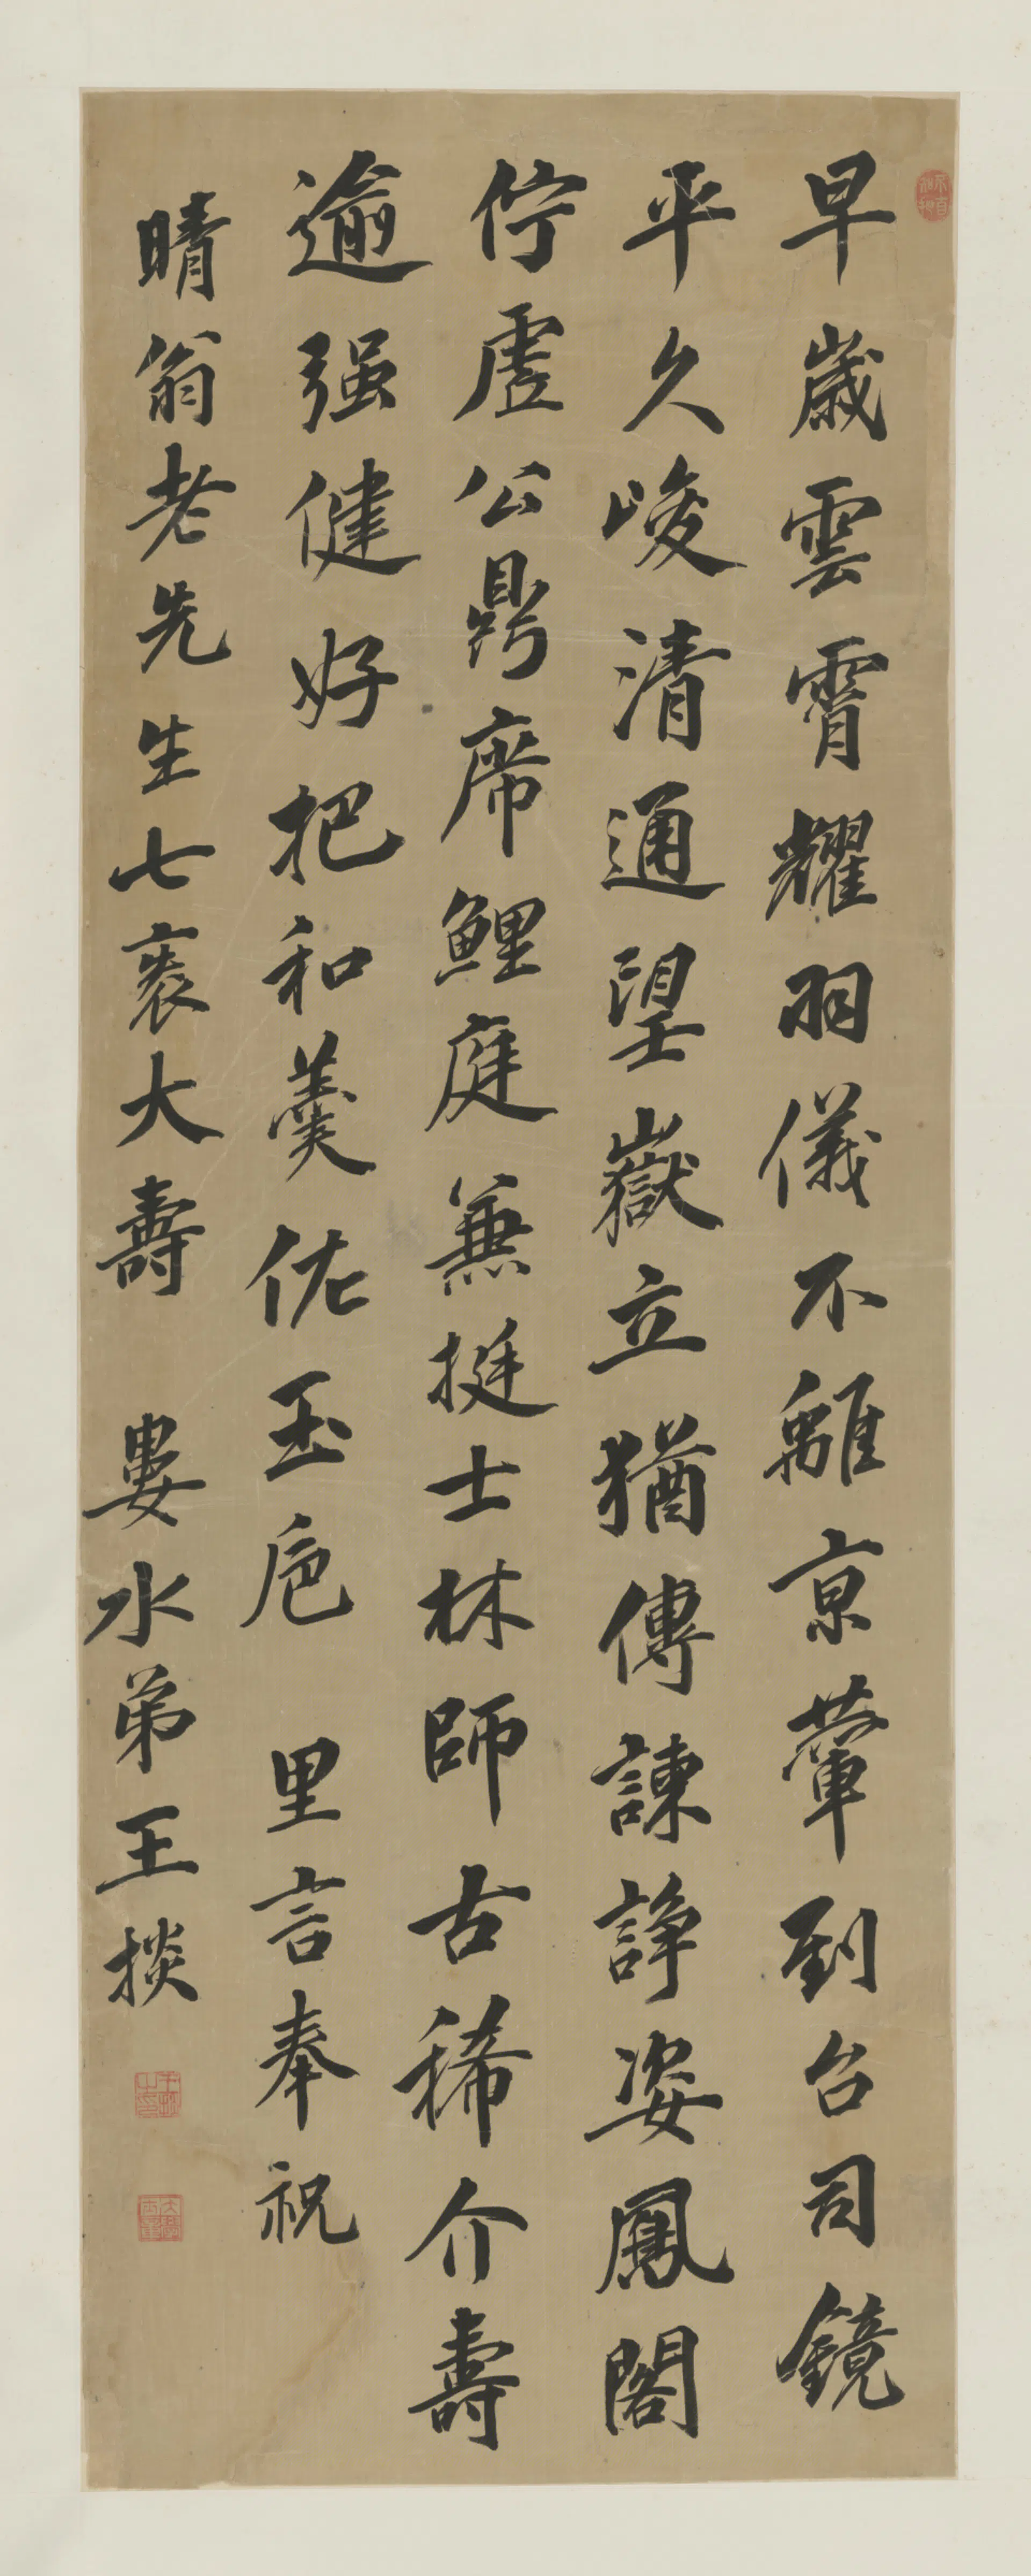 早歲雲霄耀羽儀不離京輦到台司鏡
平久峻清通望嶽立猶傳諫諍姿鳳閣
佇虛公鼎席鯉庭兼挺士林師古稀介壽
逾强健好把和羹佐玉卮　里言奉祝
晴翁老先生七袠大壽　婁水弟王掞